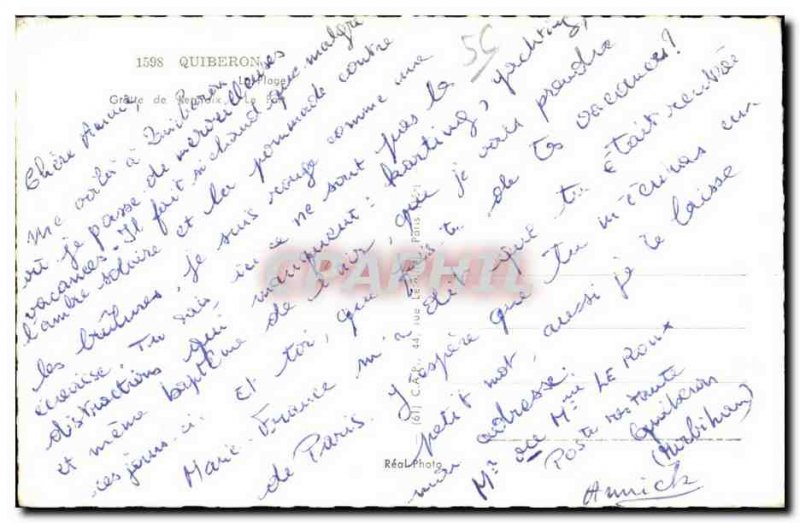 1598 QUIBERON
La Plage
Grotte de Kerniscob - Le
Chère Annie,
Me voilà à Quiberon
où je passe de merveilleuses
vacances. Il fait si chaud que malgré
l'ambre solaire et la pommade contre
les brûlures, je suis rouge comme une
écrevisse. Tu sais, ici ce ne sont pas les
distractions qui manquent : karting, yachting,
et même baptême de l'air, que je vais prendre
ces jours-ci. Et toi, que fais-tu de tes vacances ?
Marie-France m'a dit que tu étais rentrée
de Paris. J'espère que tu m'écriras un
petit mot, aussi je te laisse
mon adresse.
Mr ou Mme LE ROUX
Poste restante
Quiberon
(Morbihan)
Annick
56
(61) C.A.P. 44, rue Paris
Réal-Photo
CARAPHIL